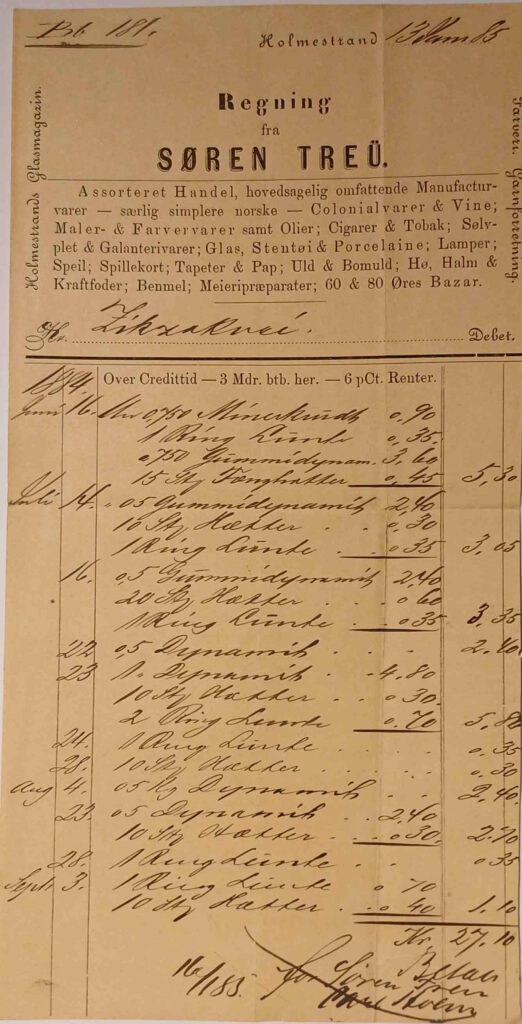 Bt. 181.
Holmestrand 13 Jan 85
Holmestrands Glasmagazin.
Farveri. Garnforretning.
Regning
fra
SØREN TREÜ.
Assorteret Handel, hovedsagelig omfattende Manufactur-
varer — særlig simplere norske — Colonialvarer & Vine;
Maler- & Farvervarer samt Olier; Cigarer & Tobak; Sølv-
plet & Galanterivarer; Glas, Stentøi & Porcelaine; Lamper;
Speil; Spillekort; Tapeter & Pap; Uld & Bomuld; Hø, Halm &
Kraftfoder; Benmel; Meieripræparater; 60 & 80 Øres Bazar.
Hr. Debet.
1884. Over Credittid — 3 Mdr. btb. her. — 6 pCt. Renter.
Juni 16. 0,750 Minerkrudt 0.90
1 Ring Lunte 0.35.
0,750 Gummidynam. 3.60
15 Stk Fænghatter 0,45 5,30
Juli 14. 05 Gummidynamit 2,40
10 Stk Hætter . . 0.30
1 Ring Lunte . . 035 3,05
16. 0,5 Gummidynamit 2,40
20 Stk Hætter . 0.60
1 Ring Lunte . . 035 3,35
22 0,5 Dynamit . . . 2.40
23 1 Dynamit . . 4.80
10 Stk Hætter . . 0.30
2 Ring Lunte . 0.70 5,80
24. 1 Ring Lunte . . . 0.35
28. 10 Stk Hætter . . . 0.30
Aug 4. 05 Kg Dynamit . . 2,40.
23. 05 Dynamit . 2,40
10 Stk Hætter . . 030. 2.70
28. 1 Ring Lunte . . 035
Sept. 3. 1 Ring Lunte 0 70
10 Stk Hætter . . 0 40 1.10
Kr. 27.10
Betalt
16/1 85. for Søren Treu